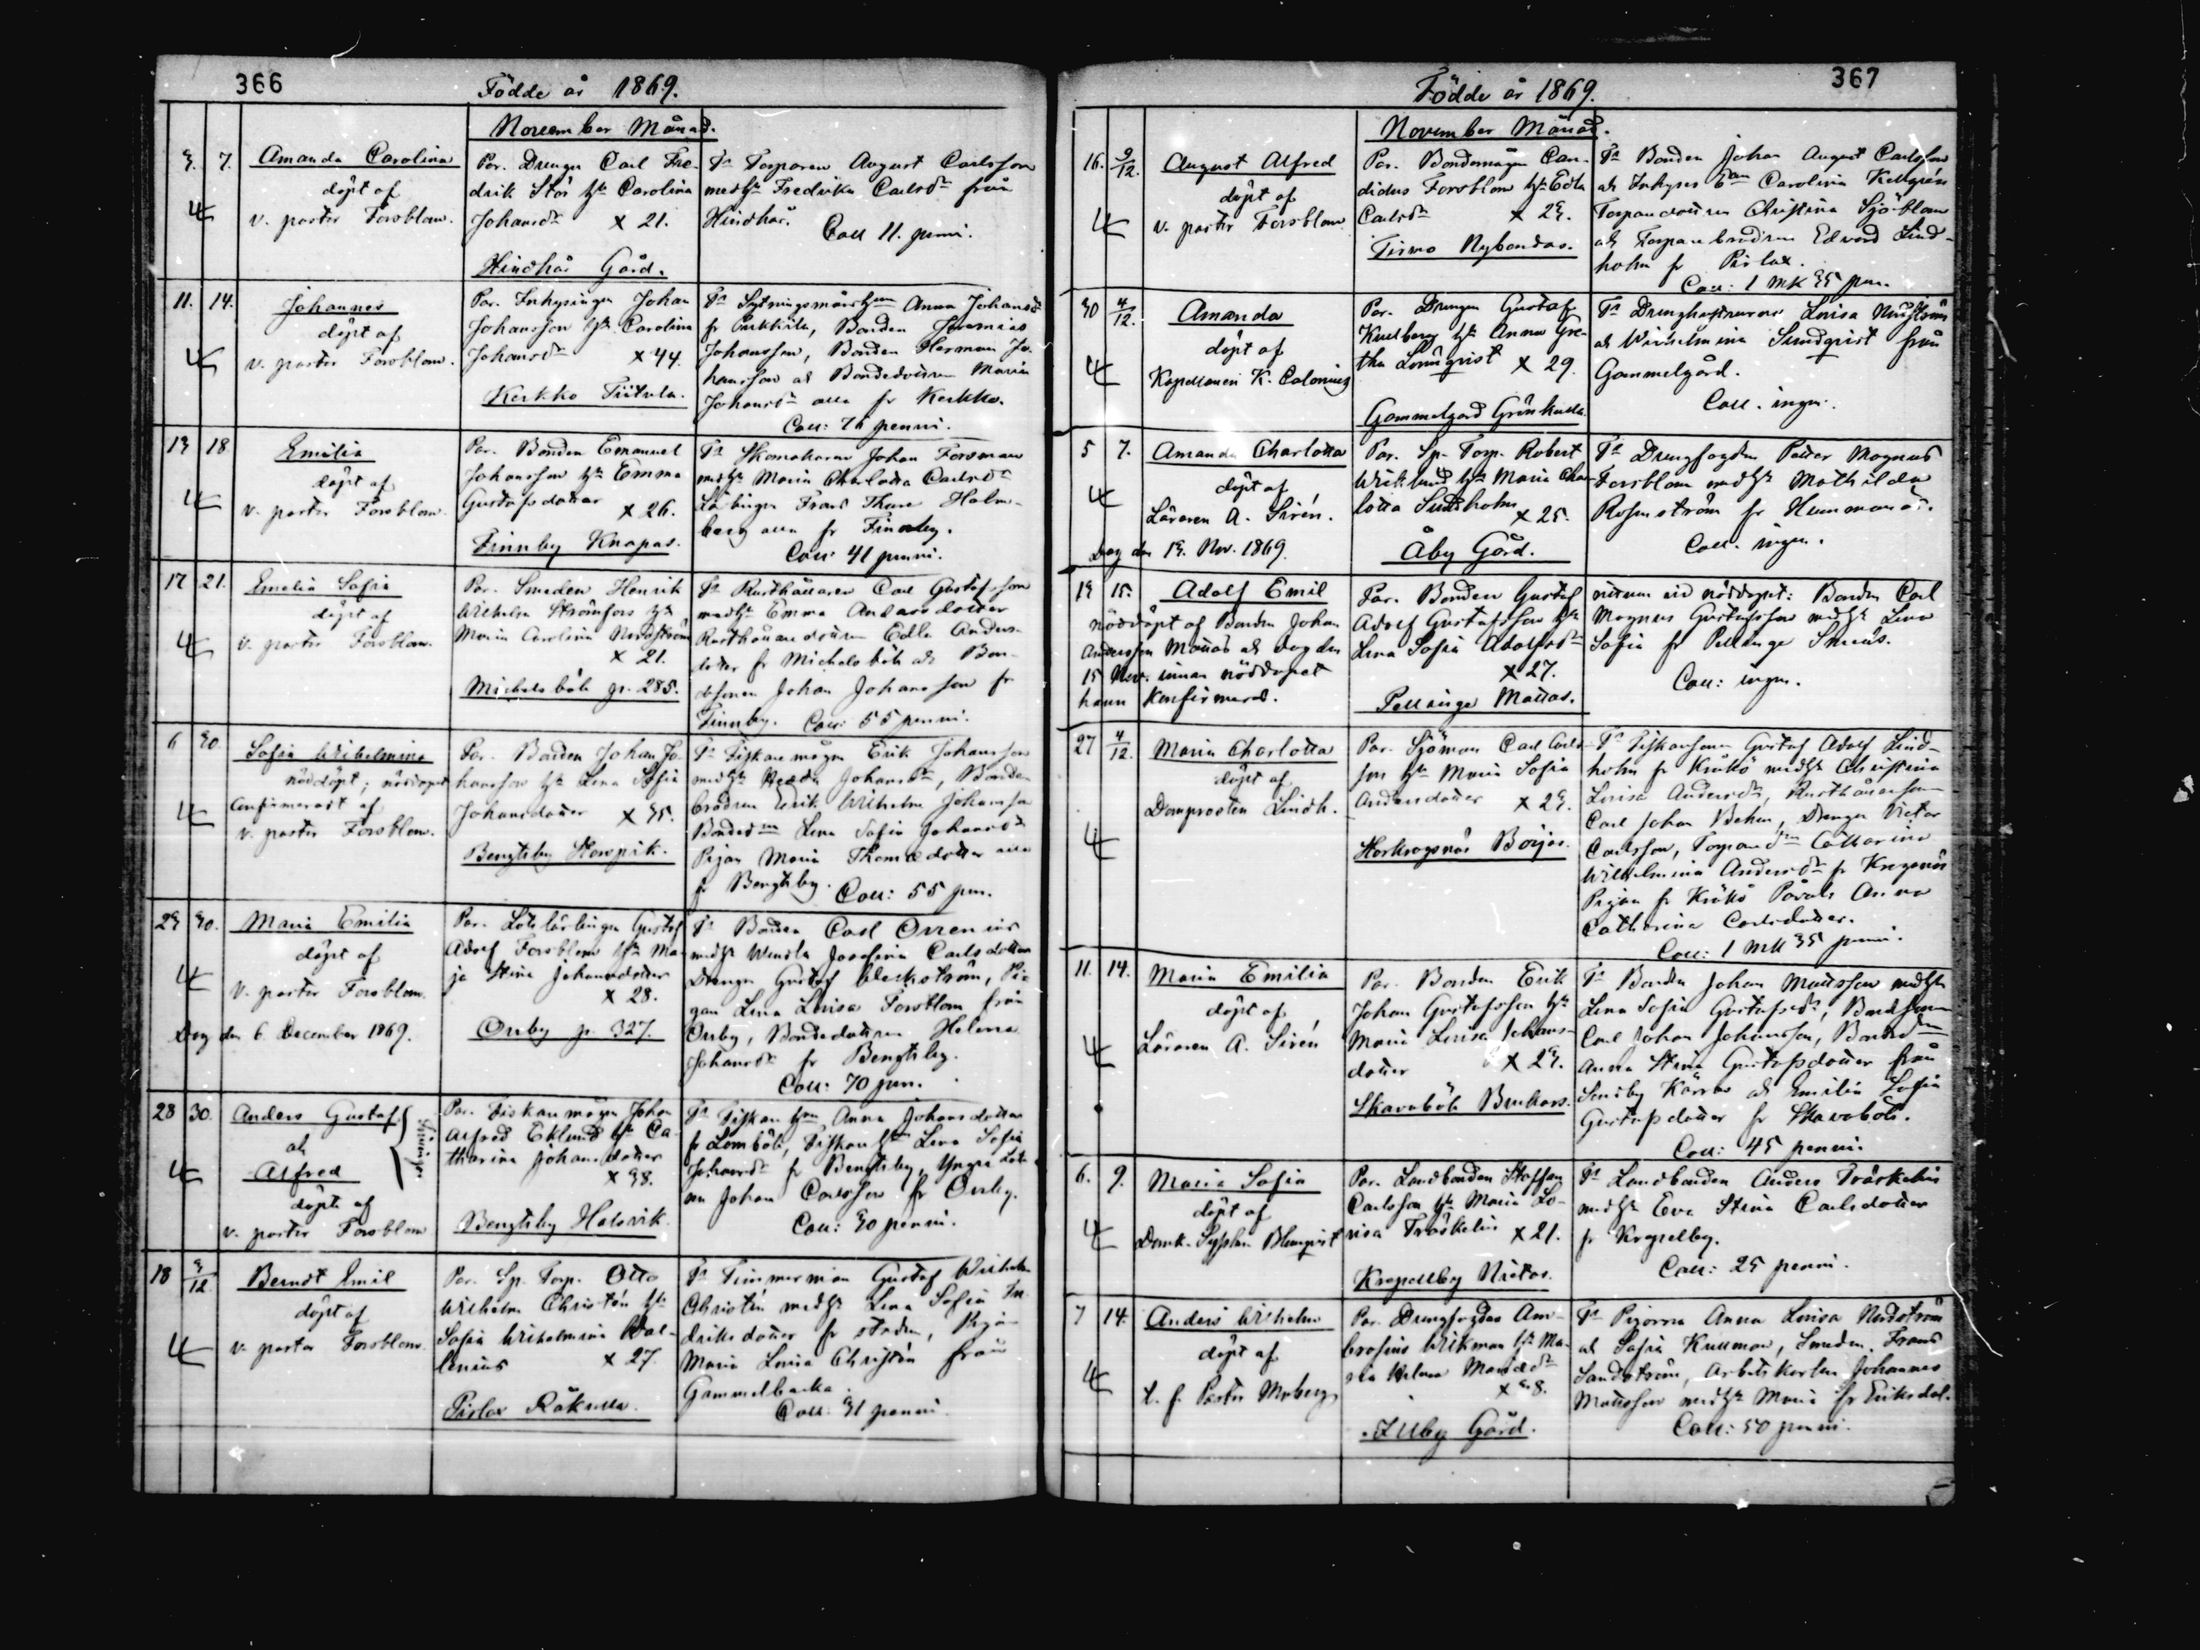 366
Födde år 1869.
November Månad.
3. 7. Amanda Carolina
döpt af
v. pastor Forsblom.
Par. Drengen Carl Fre-
drik Stor hu Carolina
Johansdr x 21.
Hindhår Gård.
Ts Torparen August Carlsson
medhu Fredrika Carlsdr från
Hindhår.
Coll 11. penni.
11. 14. Johannes
döpt af
v. pastor Forsblom.
Par. Inhysingen Johan
Johansson hu Carolina
Johansdr x 44.
Kerkko Tiitola.
Anna Johansdr
Bonden Jeremias
Johansson, Bonden Herman Jo-
hansson och Bondedottren Maria
Johansdr alla fr Kerkko.
Coll: 76 penni.
13 18 Emilia
döpt af
v. pastor Forsblom.
Par. Bonden Emanuel
Johansson hu Emma
Gustafsdotter x 26.
Finnby Knapas.
Ts Skomakaren Johan Forsman
medhu Maria Charlotta Carlsdr
Lärlingen Frans Thure Holm-
berg alla fr Finnby.
Coll: 41 penni.
17 21. Emelia Sofia
döpt af
v. pastor Forsblom.
Par. Smeden Henrik
Wilhelm Strömfors hu
Maria Carolina Nordström
x 21.
Michelsböle p. 285.
Ts Rusthållaren Carl Gustafsson
medhu Emma Andersdotter
Rusthållaredottren Edla Anders-
dotter fr Michelsböle och Bon-
desonen Johan Johansson fr
Finnby. Coll: 55 penni.
6 30. Sofia Wilhelmina
nöddöpt; nöddopet
confirmeradt af
v. pastor Forsblom.
Par. Bonden Johan Jo-
hansson hu Lena Sofia
Johansdotter x 35.
Bengtsby Storpvik.
Ts Fiskaremågen Erik Johansson
medhu Hedda Johansdr, Bonde-
brodren Erik Wilhelm Johansson
Lena Sofia Johansdr
Pigan Maria Thomædotter alla
fr Bengtsby. Coll: 55 pen.
23 30. Maria Emilia
döpt af
v. pastor Forsblom.
Död den 6 December 1869.
Par. Lotslärlingen Gustaf
Adolf Forsblom hu Ma-
ja Stina Johansdotter
x 28.
Onby p. 327.
Ts Bonden Carl Orrenius
medhu Wendla Josefina Carlsdotter
Drengen Gustaf Weckström, Pi-
gan Lena Lovisa Forsblom från
Onby, Bondedottren Helena
Johansdr fr Bengtsby.
Coll: 70 pen.
28 30. Anders Gustaf
och
Alfred
Tvillingar
döpte af
v. pastor Forsblom
Par. Fiskaremågen Johan
Alfred Eklund hu Ca-
tharina Johansdotter
x 38.
Bengtsby Halsvik.
Anna Johansdotter
Lena Sofia
Johansdr fr Bengtsby, Yngre Lots-
en Johan Carlsson fr Onby.
Coll: 30 penni.
18 3/12 Berndt Emil
döpt af
v. pastor Forsblom.
Par. Sp. Torp. Otto
Wilhelm Christén hu
Sofia Wilhelmina Wal-
lenius x 27.
Pirlax Råkulla.
Ts Timmerman Gustaf Wilhelm
Christén medhu Lena Sofia In-
driksdotter fr staden, Pigan
Maria Lovisa Christén från
Gammelbacka.
Coll: 31 penni.
367
Födde år 1869.
November Månad.
16. 9/12. August Alfred
döpt af
v. pastor Forsblom
Par. Bondemågen Can-
didus Forsblom hu Edla
Carlsdr x 23.
Tirmo Nybondas.
Ts Bonden Johan August Carlsson
och Inhyses Carolina Kellgrén
Torparedottren Christina Sjöblom
och Torparebrodren Edvard Lind-
holm fr Pirlax.
Coll: 1 mk 35 pen.
30 4/12. Amanda
döpt af
Kapellanen K. Calonius
Par. Drengen Gustaf
Kullberg hu Anna Gre-
tha Lönnqvist x 29.
Gammelgård Grönkulla
Lovisa
och Wilhelmina Sundqvist från
Gammelgård.
Coll. ingen.
5 7. Amanda Charlotta
döpt af
Läraren A. Sirén.
Död den 13. Nov. 1869.
Par. Sp. Torp. Robert
Wicklund hu Maria Char-
lotta Lindholm x 25.
Åby Gård.
Ts Drengfogden Petter Magnus
Forsblom medhu Mathilda
Rosenström fr Hummarö.
Coll. ingen.
13 15. Adolf Emil
nöddöpt af Bonden Johan
Andersson Mattas och dog den
15 Nov. innan nöddopet
hann konfirmeras.
Par. Bonden Gustaf
Adolf Gustafsson hu
Lena Sofia Adolfsdr
x 27.
Pellinge Mattas.
vittnen vid nöddopet: Bonden Carl
Magnus Gustafsson medhu Lena
Sofia fr Pellinge Smeds.
Coll: ingen.
27 4/12. Maria Charlotta
döpt af
Domprosten Lindh.
Par. Sjöman Carl Carls-
son hu Maria Sofia
Andersdotter x 23.
Horkrogsnäs Börjas.
Ts Fiskaresonen Gustaf Adolf Lind-
holm fr Kråkö medhu Christina
Lovisa Andersdr, Rusthållareson
Carl Johan Behm, Drengen Victor
Carlsson, Catharina
Wilhelmina Andersdr fr Krogsnäs
Pigan fr Kråkö Påvals Anna
Catharina Carlsdotter.
Coll: 1 mk 35 penni.
11. 14. Maria Emilia
döpt af
Läraren A. Sirén
Par. Bonden Erik
Johan Gustafsson hu
Maria Lovisa Johans-
dotter x 23.
Skavaböle Brukars.
Ts Bonden Johan Mattsson medhu
Lena Sofia Gustafsdr, Bondsonen
Carl Johan Johansson,
Anna Stina Gustafsdotter från
Sensby Kärras och Emilia Sofia
Gustafsdotter fr Skavaböle.
Coll: 45 penni
6. 9. Maria Sofia
döpt af
Domk. Sysslom. Blomqvist
Par. Landbonden Staffan
Carlsson hu Maria Lo-
visa Träskelin x 21.
Kroppelby Nietas.
Ts Landbonden Anders Träskelin
medhu Eva Stina Carlsdotter
fr Kroppelby.
Coll: 25 penni.
7 14. Anders Wilhelm
döpt af
t. f. Pastor Moberg
Par. Drengfogden Am-
brosius Wikman hu Ma-
ria Helena
Illby Gård.
Ts Pigorna Anna Lovisa Nordström
och Sofia Kullman, Smeden Frans
Sandström, Arbetskarlen Johannes
Mattsson medhu Maria fr Eriksdal.
Coll: 50 penni.